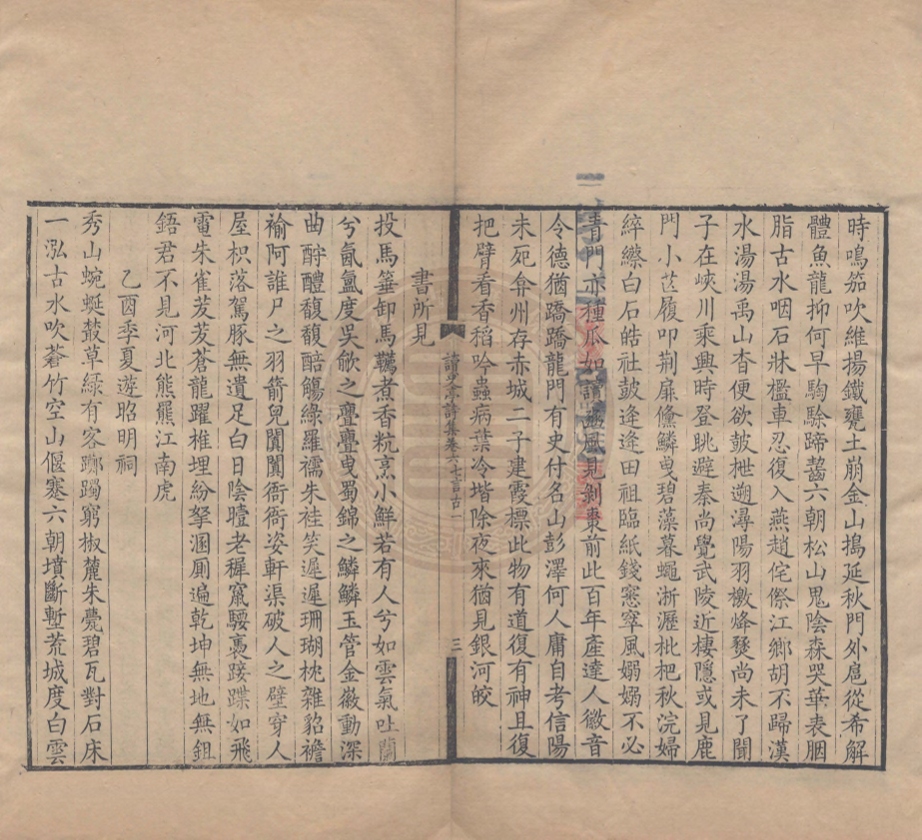 時鳴笳吹維揚鐵甕土崩金山搗延秋門外扈從希解
體魚龍抑何早騊駼蹄齧六朝松山鬼陰森哭華表胭
脂古水咽石牀檻車忍復入燕趙侘傺江鄉胡不歸漢
水湯湯禹山杳便欲皷枻遡潯陽羽檄烽燹尚未了聞
子在峽川乘興時登眺避秦尚覺武陵近棲隱或見鹿
門小芒履叩荆扉鯈鱗曳碧藻暮蠅淅瀝枇杷秋浣婦
綷縩白石皓社皷逢逢田祖臨紙錢窸窣風嫋嫋不必
青門亦種瓜如讀豳風見剝棗前此百年產達人徽音
令德猶蹻蹻龍門有史付名山彭澤何人庸自考信陽
未死弇州存赤城二子建霞標此物有道復有神且復
把臂看香稻吟蟲病葉冷堦除夜來猶見銀河皎
讀史亭詩集卷六七言古一
三
書所見
投馬箠卸馬韉煮香秔烹小鮮若有人兮如雲氣吐蘭
兮氤氳度吳歈之亹亹曳蜀錦之鱗鱗玉管金徽動深
曲酧醴馥馥醅觴綠羅襦朱袿笑遲遲珊瑚枕雜貂襜
褕阿誰尸之羽箭兒闐闐衙衙姿軒渠破人之壁穿人
屋枳落駕豚無遺足白日陰曀老穉竄騕褭踥蹀如飛
電朱雀茇茇蒼龍躍椎埋紛拏溷厠遍乾坤無地無鉏
鋙君不見河北熊羆江南虎
乙酉季夏遊昭明祠
秀山蜿蜒鼓草綠有客躑躅窮椒麓朱甍碧瓦對石床
一泓古水吹蒼竹空山偃蹇六朝墳斷塹荒城度白雲